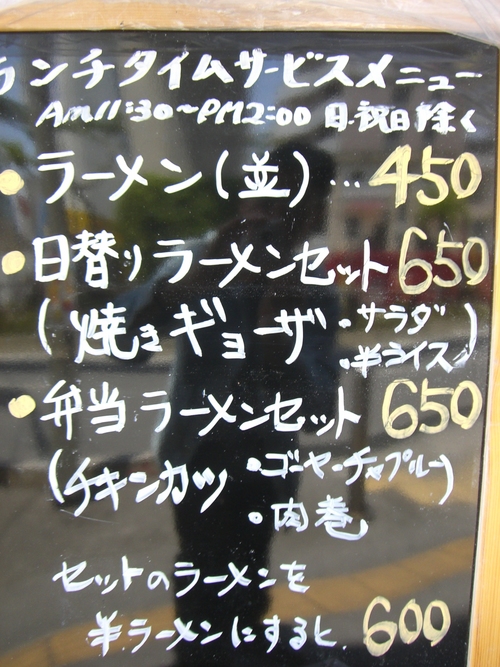 ランチタイムサービスメニュー
Am11:30~PM2:00 日.祝日除く
●ラーメン(並)…450
●日替りラーメンセット 650
(焼きギョーザ ・サラダ ・半ライス)
●弁当ラーメンセット 650
(チキンカツ ・ゴーヤーチャンプルー ・肉巻)
セットのラーメンを
半ラーメンにすると. 600